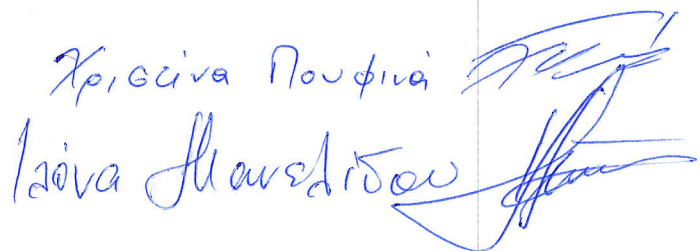 Χριστίνα Πουφινά
Ιλόνα Μανελίδου